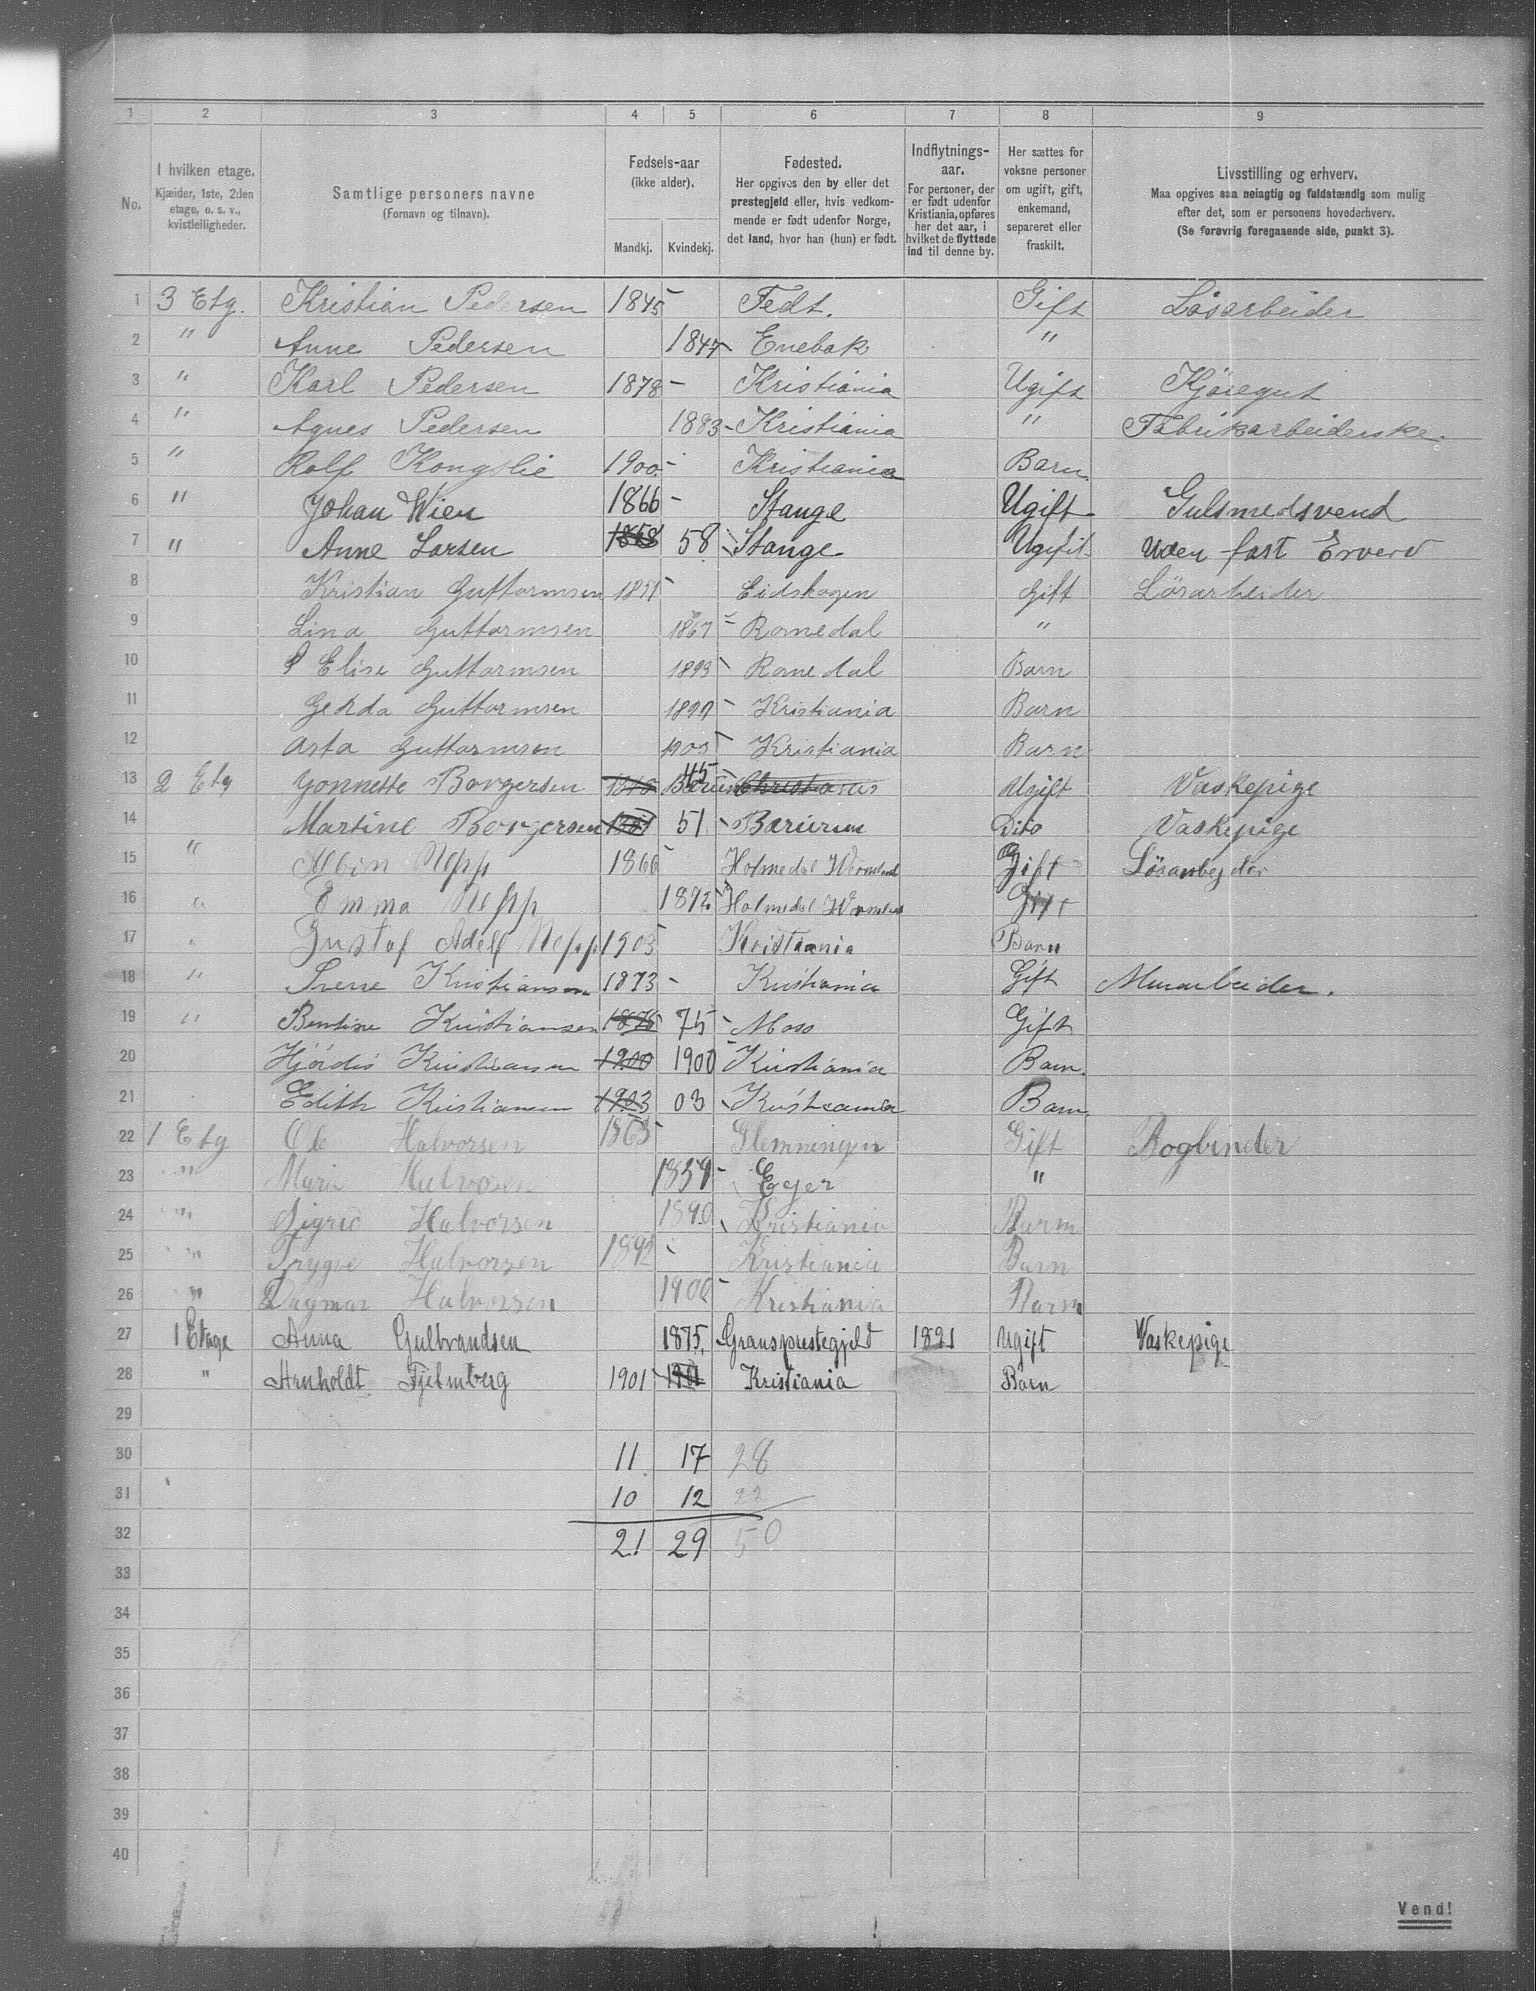 1 2 3 4 5 6 7 8 9
No.
I hvilken etage.
Kjælder, 1ste, 2den etage, o. s. v., kvistleiligheder.
Samtlige personers navne
(Fornavn og tilnavn).
Fødsels-aar
(ikke alder).
Mandkj. Kvindekj.
Fødested.
Her opgives den by eller det prestegjeld eller, hvis vedkommende er født udenfor Norge, det land, hvor han (hun) er født.
Indflytnings-aar.
For personer, der er født udenfor Kristiania, opføres her det aar, i hvilket de flyttede ind til denne by.
Her sættes for voksne personer om ugift, gift, enkemand, separeret eller fraskilt.
Livsstilling og erhverv.
Maa opgives saa nøiagtig og fuldstændig som mulig efter det, som er personens hovederhverv.
(Se forøvrig foregaaende side, punkt 3).
1 3 Etg. Kristian Pedersen 1845 Fedt. Gift Løsarbeider
2 " Anne Pedersen 1847 Enebak "
3 " Karl Pedersen 1878 - Kristiania Ugift Kjøregut
4 " Agnes Pedersen 1883 - Kristiania " Fabrikarbeiderske.
5 " Rolf Kongslie 1900 - Kristiania Barn
6 " Johan Wien 1866 - Stange Ugift Gulsmedsvend
7 " Anne Larsen 1858 58 Stange Ugift Uden fast Erverv
8 Kristian Guttormsen 1851 Eidskogen Gift Lösarbeider
9 Lina Guttormsen 1867 Romedal "
10 Elise Guttormsen 1893 Romedal Barn
11 Gerda Guttormsen 1899 Kristiania Barn
12 Asta Guttormsen 1903 Kristiania Barn
13 2 Etg Yonnette Borgersen 45 Bærum Christiania Ugift Vaskepige
14 Martine Borgersen 51 Bærum Dito Vaskepige
15 " Albin Nepp 1866 Holmedal Wermland Gift Lösarbejder
16 " Emma Nepp 1892 Holmedal Wermland Gift
17 " Gustaf Adolf Nepp 1903 Kristiania Barn
18 " Sverre Kristiansen 1873 - Kristiania Gift Murarbeider.
19 " Bentine Kristiansen 1875 75 Moss Gift
20 Hjördis Kristiansen 1900 1900 Kristiania Barn.
21 Edith Kristiansen 1903 03 Kristiania Barn.
22 1 Etg Ole Halvorsen 1863 Glemmingen Gift Bogbinder
23 " Marie Halvorsen 1859 Eger "
24 " Sigrid Halvorsen 1890 Kristiania Barn
25 " Trygve Halvorsen 1892 Kristiania Barn
26 " Dagmar Halvorsen 1900 Kristiania Barn
27 1 Etage Anna Gulbrandsen 1875 Gransprestegjeld 1891 Ugift Vaskepige
28 " Arnholdt Fjelmberg 1901 1901 Kristiania Barn
29
30 11 17 28
31 10 12 22
32 21 29 50
33
34
35
36
37
38
39
40
Vend!